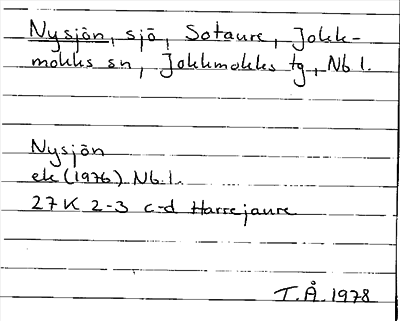 Nysjön, sjö, Sotaure, Jokk-
mokks sn, Jokkmokks tg, Nb l.
Nysjön
ek (1976) Nb.l.
27K 2-3 c-d Harrejaure
T.Å. 1978